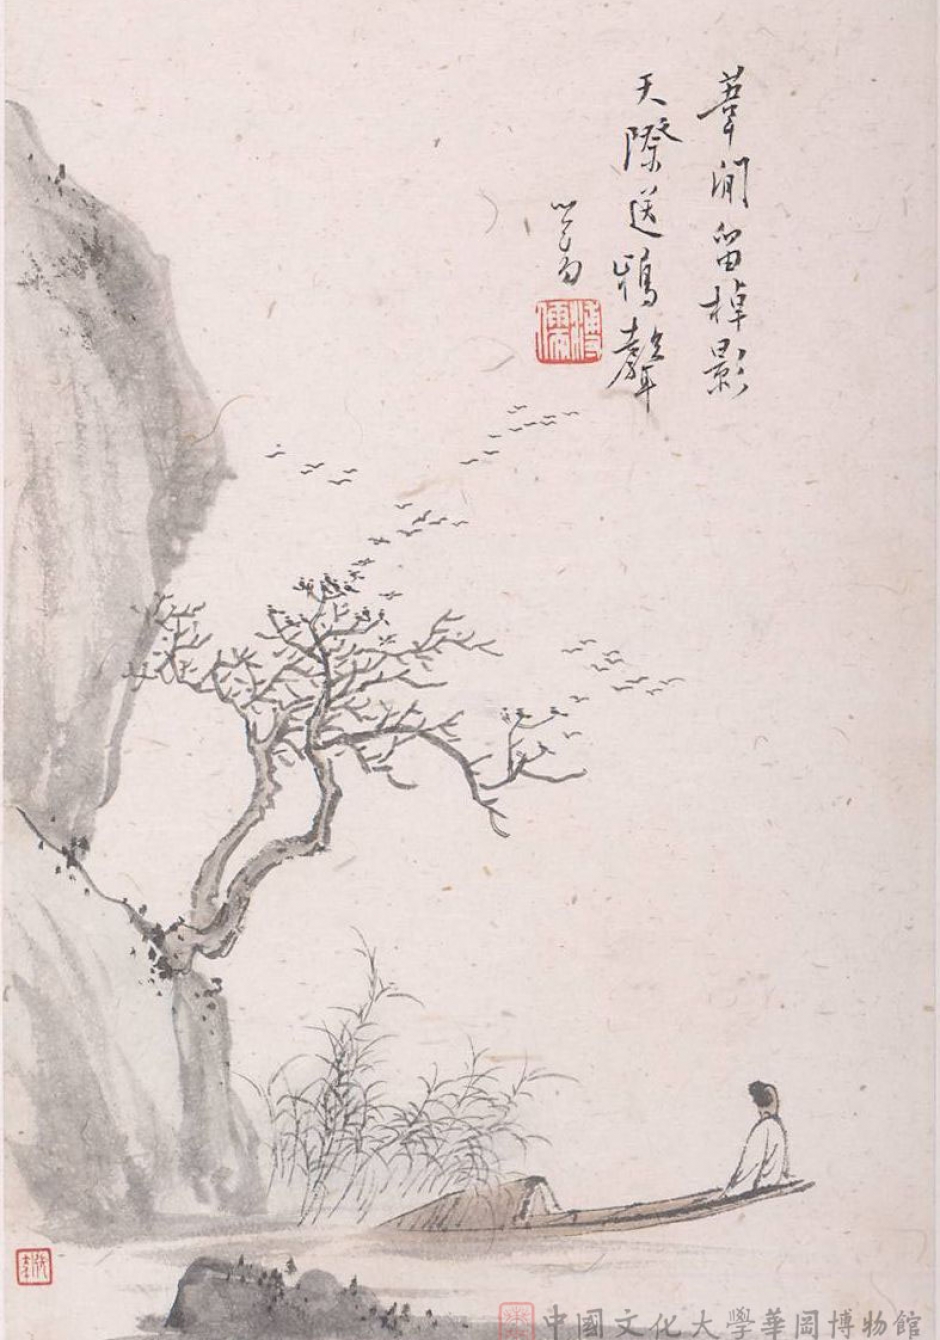 葦間留棹影
天際送鴉聲
心畬
溥儒
中國文化大學華岡博物館